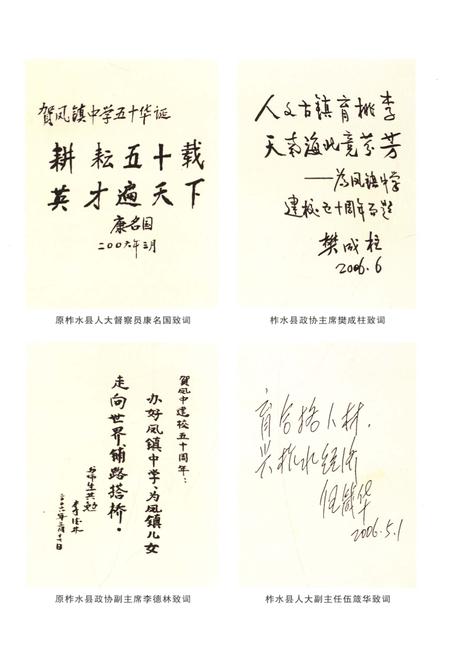 贺凤镇中学五十华诞
耕耘五十载
英才遍天下
康名国
二〇〇六年三月
原柞水县人大督察员康名国致词
人文古镇育桃李
天南海北竞芬芳
——为凤镇中学
建校五十周年而题
樊成柱
2006.6
柞水县政协主席樊成柱致词
贺凤中建校五十周年：
办好凤镇中学、为凤镇儿女
走向世界铺路搭桥。
与师生共勉
李德林
二〇〇六年三月十一日
原柞水县政协副主席李德林致词
育合格人材，
兴柞水经济
伍箴华
2006.5.1
柞水县人大副主任伍箴华致词